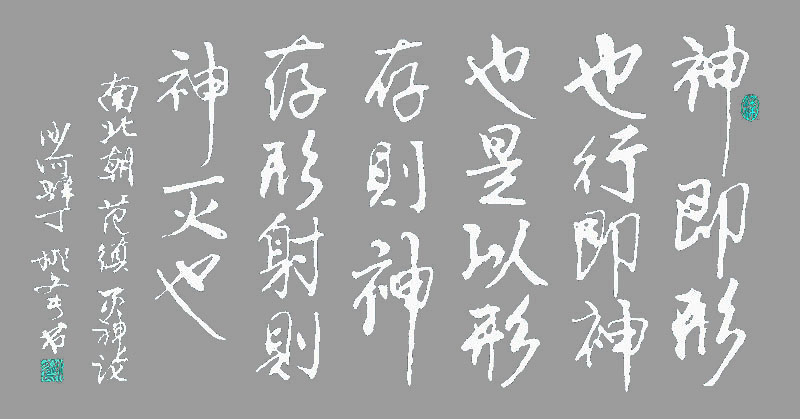 神即形
也行即神
也是以形
存則神
存形射則
神灭也
南北朝范缜灭神论
沙河